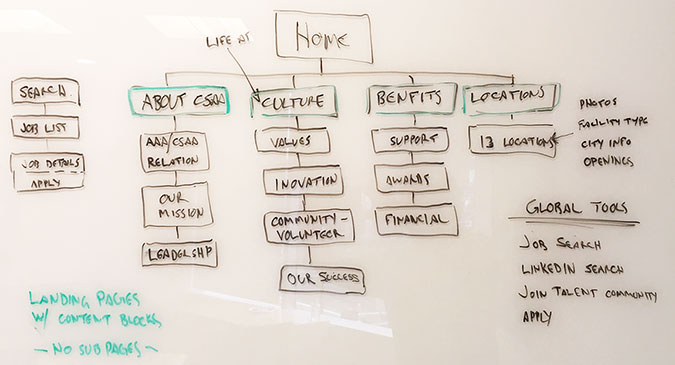 HOME
LIFE AT
SEARCH
JOB LIST
JOB DETAILS
APPLY
ABOUT CSAA
AAA/CSAA
RELATION
OUR
MISSION
LEADERSHIP
CULTURE
VALUES
INOVATION
COMMUNITY-
VOLUNTEER
OUR SUCCESS
BENFITS
SUPPORT
AWARDS
FINANCIAL
LOCATIONS
13 LOCATIONS
PHOTOS
FACILITY TYPE
CITY INFO
OPENINGS
GLOBAL TOOLS
JOB SEARCH
LINKEDIN SEARCH
JOIN TALENT COMMUNITY
APPLY
LANDING PAGES
W/ CONTENT BLOCKS
- NO SUB PAGES -